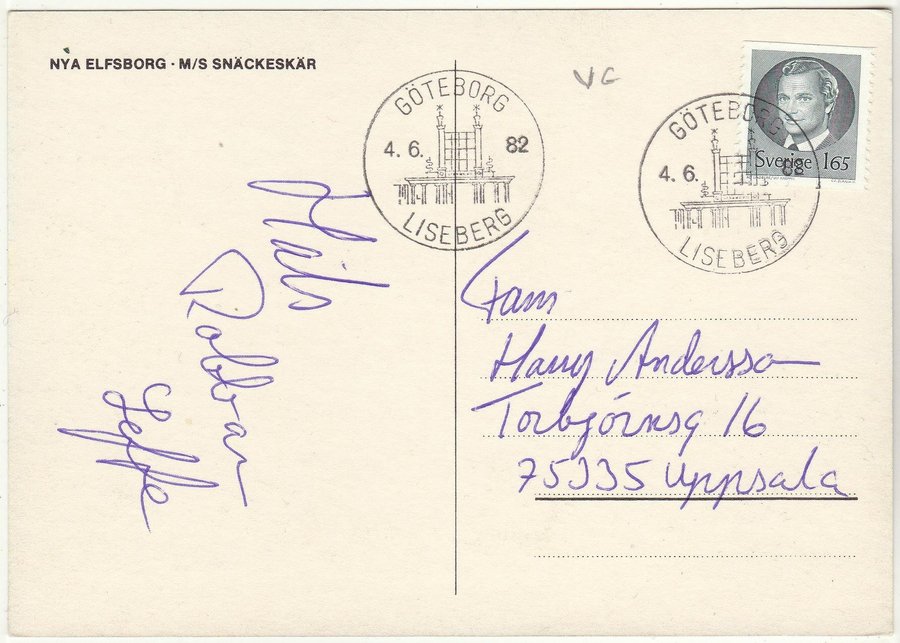 NYA ELFSBORG · M/S SNÄCKESKÄR
VG
GÖTEBORG
4. 6. 82
LISEBERG
GÖTEBORG
4. 6. 82
LISEBERG
Sverige 165
Häls
Robban
Leffe
Fam
Harry Andersson
Torbjörnsg 16
75335 Uppsala